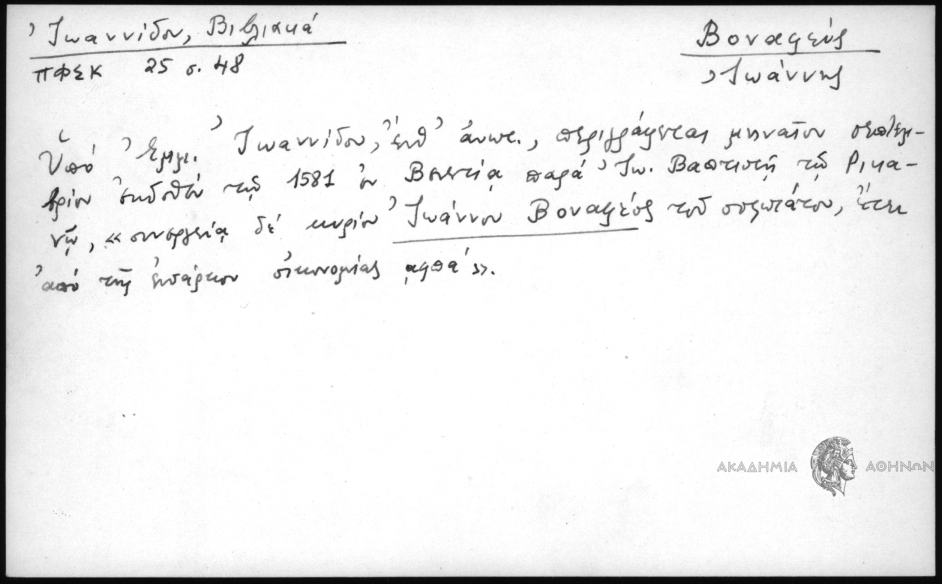 Ἰωαννίδου, Βιβλιακά
Βοναφεύς
ΠΦΣΚ 25 σ. 48
Ἰωάννης
Ὑπό Ἐμμ. Ἰωαννίδου, ἔνθ' ἀνωτ., περιγράφεται μηναῖον σεπτεμ-
βρίου ἐκδοθέν τῷ 1581 ἐν Βενετίᾳ παρά Ἰω. Βαπτιστῇ τῷ Ρικα-
νῷ, «συνεργείᾳ δέ κυρίου Ἰωάννου Βοναφέος τοῦ σοφωτάτου, ἔτει
ἀπό τῆς ἐνσάρκου οἰκονομίας ͵αφπα΄».
ΑΚΑΔΗΜΙΑ ΑΘΗΝΩΝ